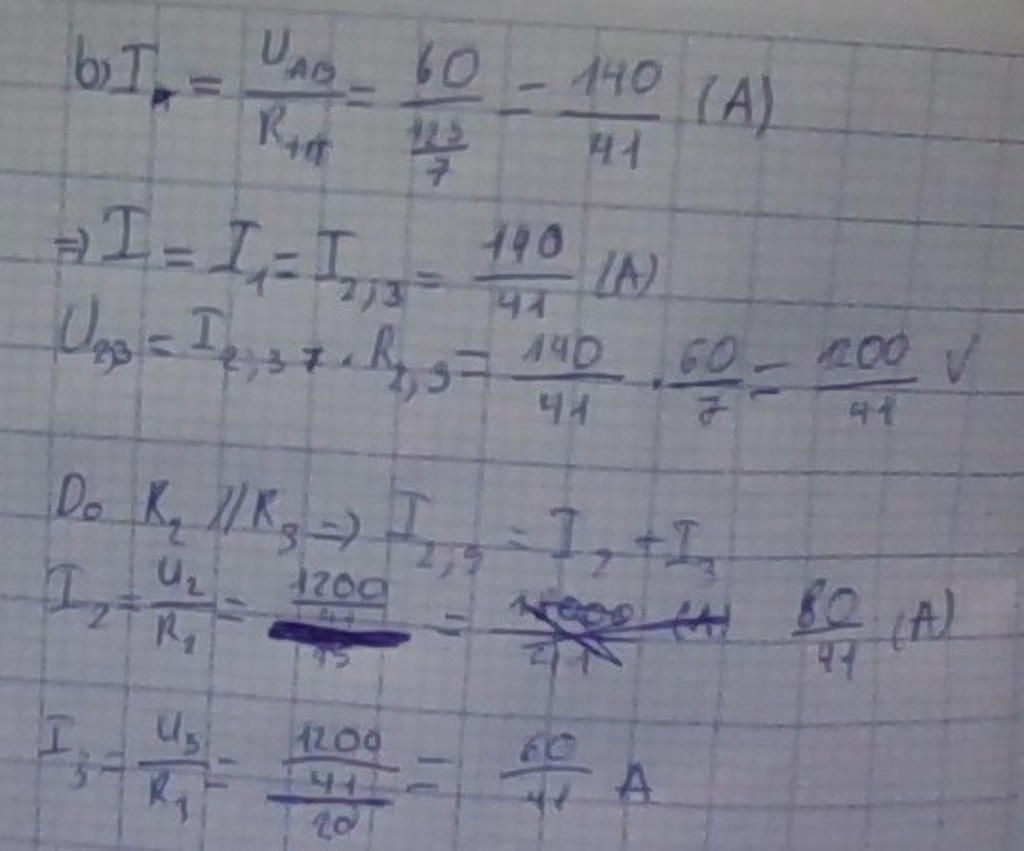 b) I = U_AB / R_tđ = 60 / (123/7) = 140/41 (A)
=> I = I_1 = I_2,3 = 140/41 (A)
U_23 = I_2,3 . R_2,3 = 140/41 . 60/7 = 1200/41 V
Do R_2 // R_3 => I_2,3 = I_2 + I_3
I_2 = U_2 / R_2 = (1200/41) / 15 = 80/41 (A)
I_3 = U_3 / R_3 = (1200/41) / 20 = 60/41 A